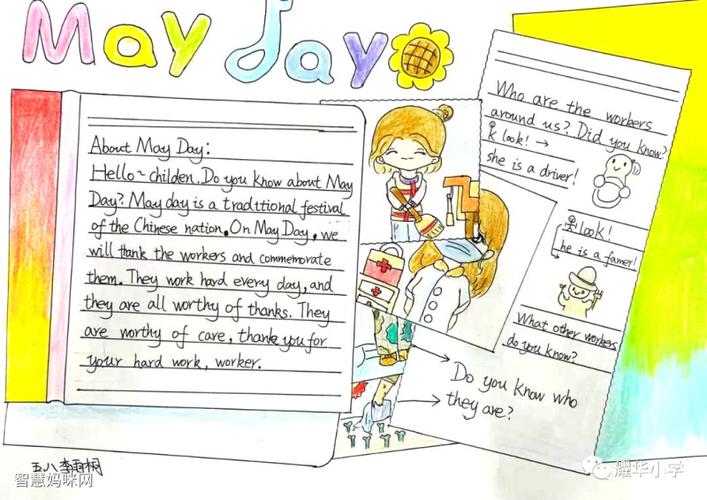 May day
About May Day:
Hello~childen. Do you know about May
Day? May day is a traditional festival
of the Chinese nation. On May Day, we
will thank the workers and commemorate
them. They work hard every day, and
they are all worthy of thanks. They
are worthy of care, thank you for
your hard work, worker.
Who are the workers
around us? Did you know?
look! →
she is a driver!
look!
he is a famer!
What other workers
do you know?
Do you know who
they are?
五八
智慧妈咪网
耀华小学